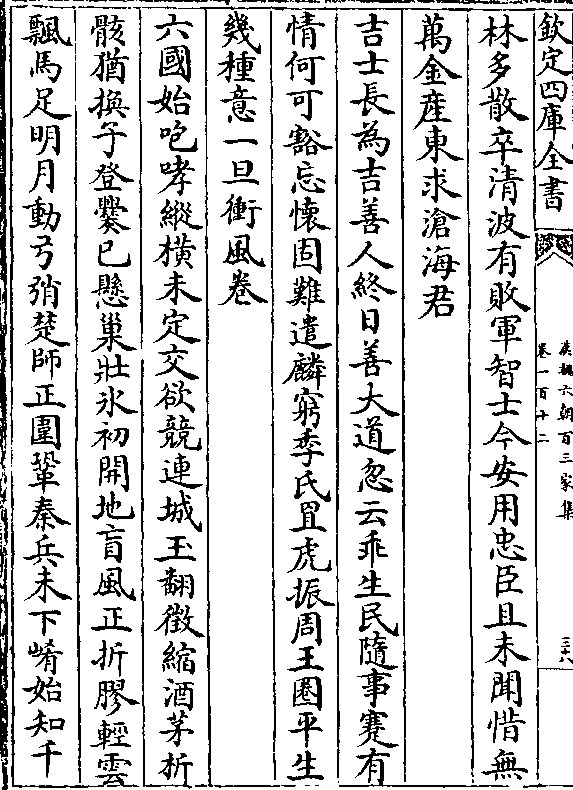 欽定四庫全書
漢魏六朝百三家集
卷一百十二
三六
林多散卒清波有敗軍智士今安用忠臣且未聞惜無
萬金産東求滄海君
吉士長為吉善人終日善大道忽云乖生民隨事蹇有
情何可豁忘懷固難遣麟窮季氏罝虎振周王圈平生
幾種意一旦衝風卷
六國始咆哮縱横未定交欲競連城玉翻徴縮酒茅折
骸猶換子登爨已懸巢壯氷初開地盲風正折膠輕雲
飄馬足明月動弓弰楚師正圍鞏秦兵未下崤始知千